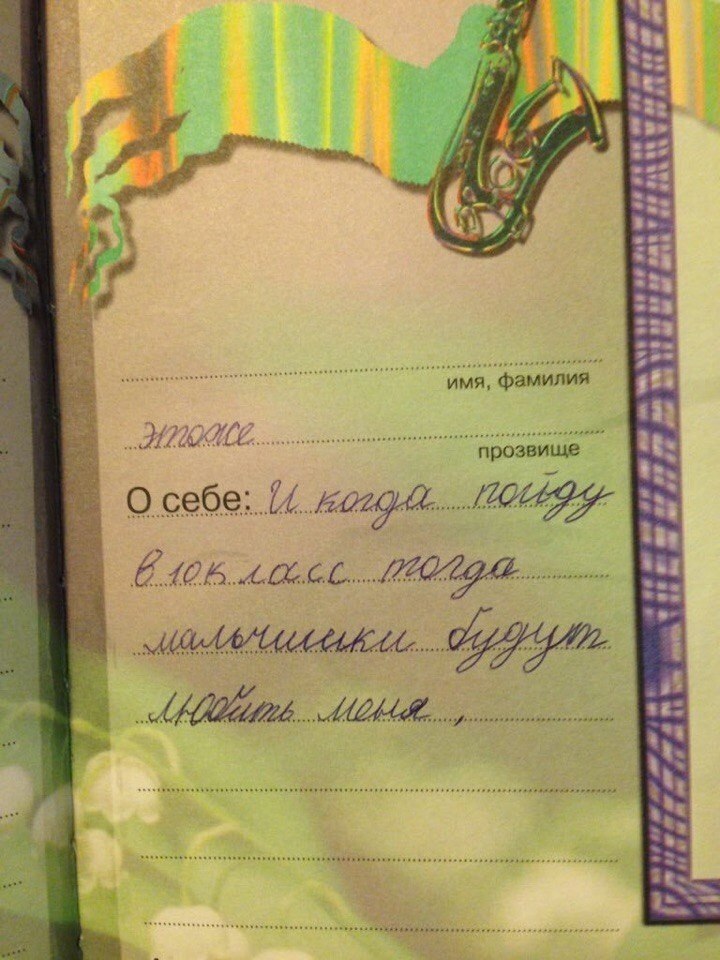 имя, фамилия
этоже
прозвище
О себе: И когда пойду
в 10 класс тогда
мальчишки будут
любить меня,